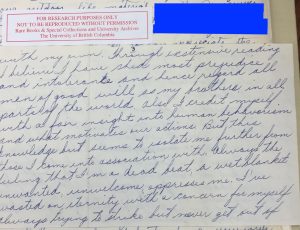 FOR RESEARCH PURPOSES ONLY
NOT TO BE REPRODUCED WITHOUT PERMISSION
Rare Books & Special Collections and University Archives
The University of British Columbia
with my aunt. Through extensive reading
I believe I have shed most prejudice
and intolerance and hence regard all
men of good will as my brothers, in all
parts of the world. Also I credit myself
with a fair insight into human behaviorism
and what motivates our actions. But this
knowledge but seems to isolate me further from
those I come into association with. Always the
feeling that I'm a dead beat, a wet blanket
unwanted, unwelcome, oppresses me. I've
wasted an eternity with a concern for myself
always trying to strike but never get out of